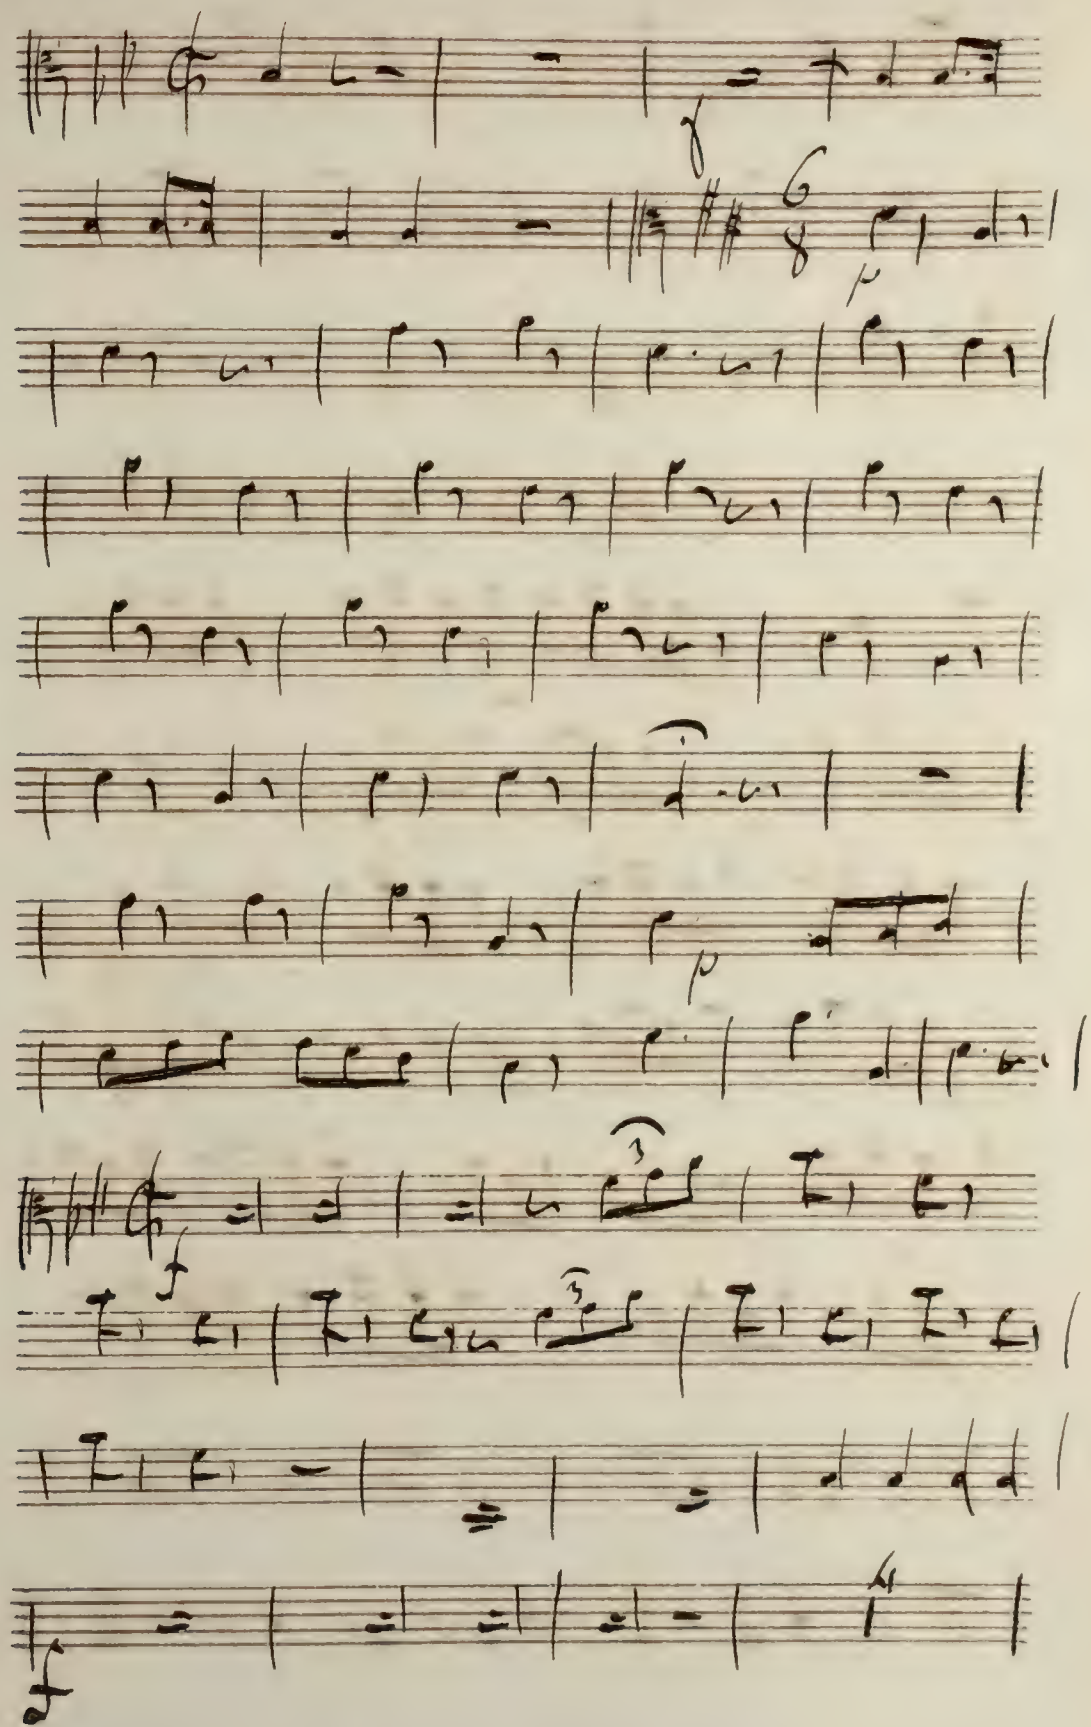 f
6
8
p
p
3
f
3
4
f